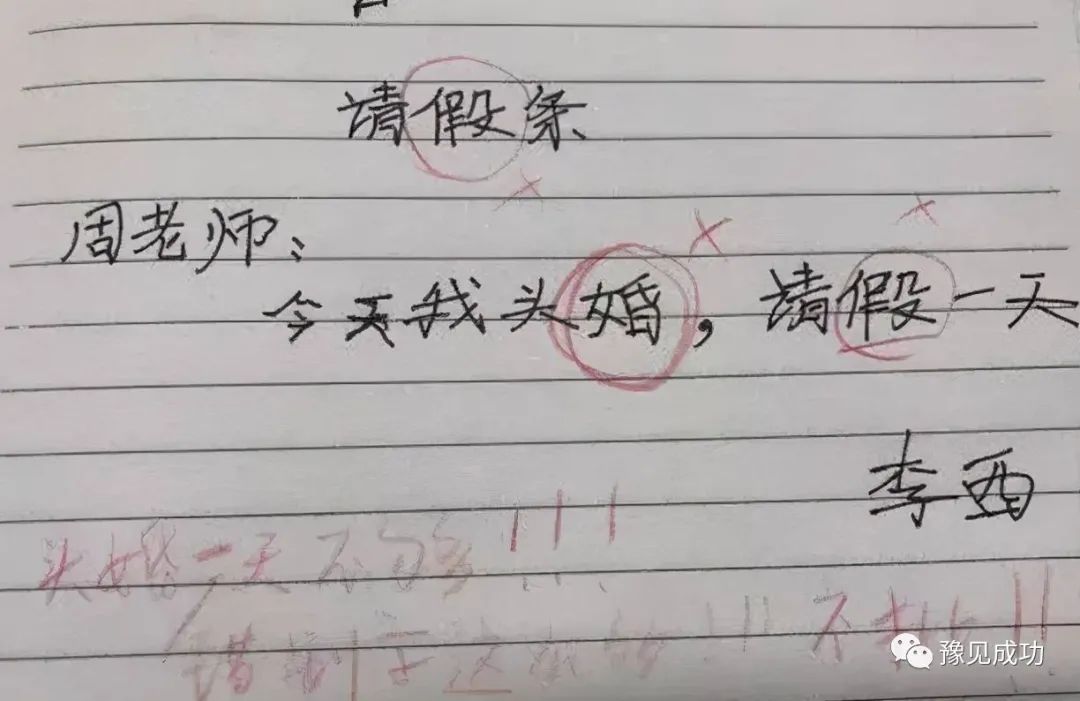 请假条
周老师：
今天我头婚，请假一天
李西
头婚一天不够！！！
错别字这么多！！！不批！！
豫见成功